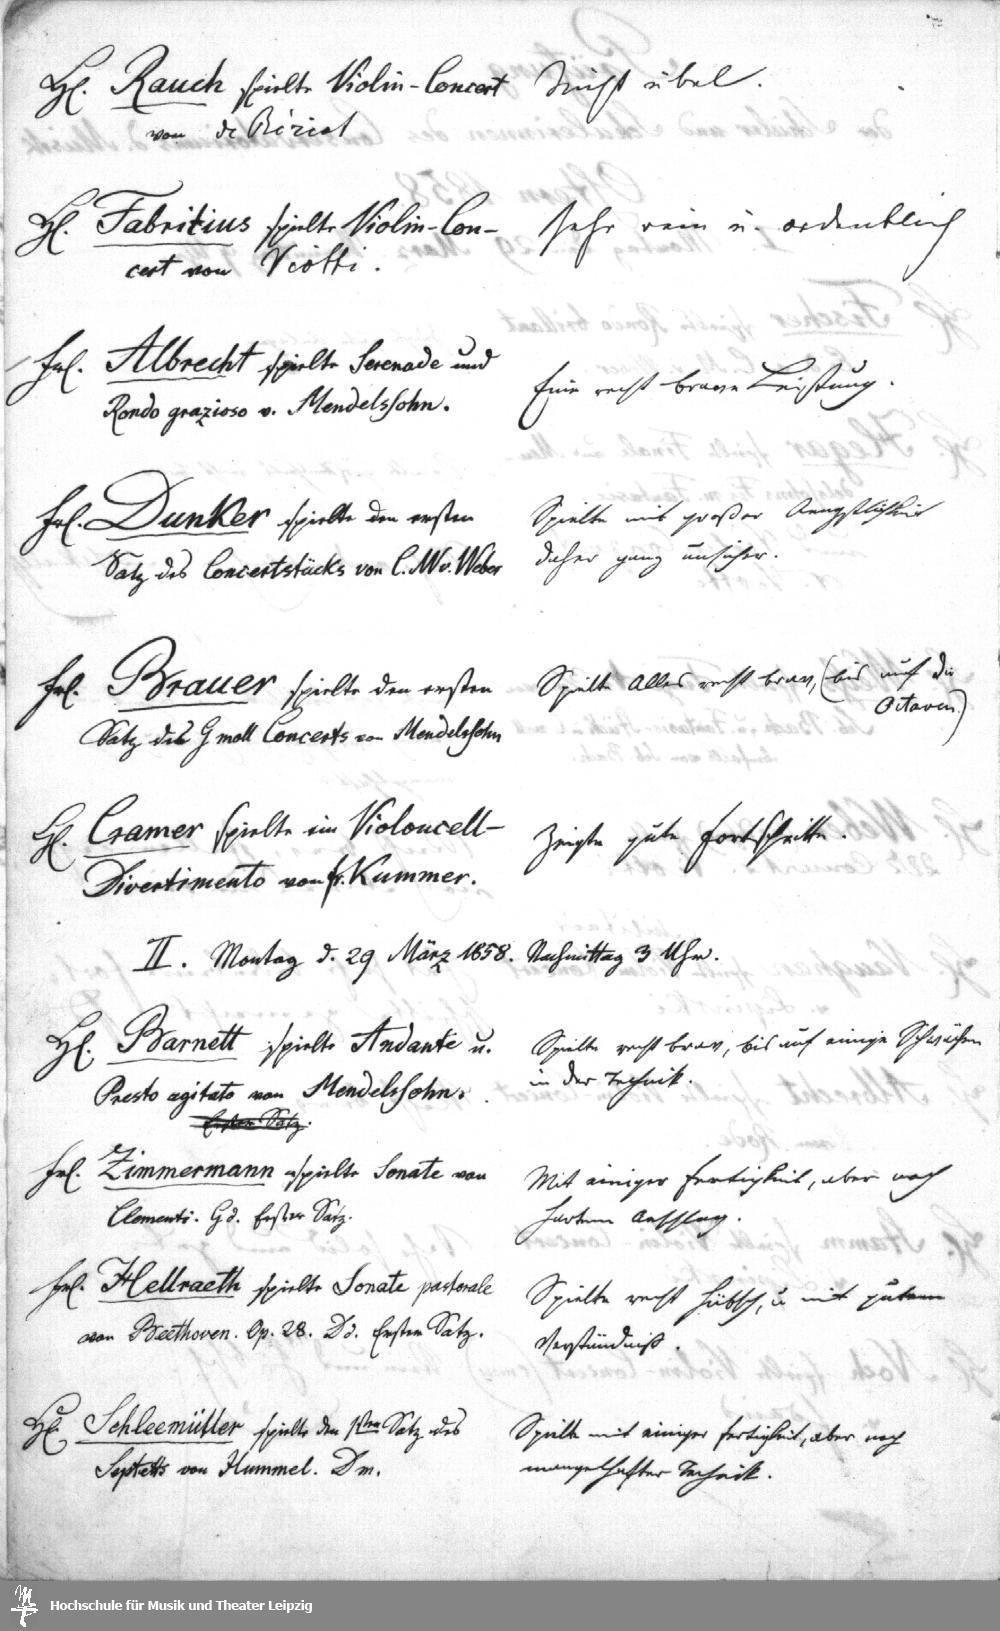 H. Rauch spielte Violin-Concert Nicht übel.
von de Bériot
H. Fabritius spielte Violin-Con- Sehr rein u. ordentlich
cert von Viotti.
Frl. Albrecht spielte Serenade und
Rondo grazioso v. Mendelssohn. Eine recht brave Leistung.
Frl. Dunker spielte den ersten Spielte mit großer Aengstlichkeit
Satz des Concertstücks von C. M v. Weber daher ganz unsicher.
Frl. Brauer spielte den ersten Spielte Alles recht brav, (bis auf die
Satz des G moll Concerts von Mendelssohn Octaven.)
H. Cramer spielte ein Violoncell- Zeigte gute Fortschritte.
Divertimento von Fr. Kummer.
II. Montag d. 29 März 1858. Nachmittag 3 Uhr.
H. Barnett spielte Andante u. Spielte recht brav, bis auf einige Schwächen
Presto agitato von Mendelssohn. in der Technik.
Erster Satz.
Frl. Zimmermann spielte Sonate von Mit einiger Fertigkeit, aber noch
Clementi. G d. Erster Satz. hartem Anschlag.
Frl. Hellraeth spielte Sonate pastorale Spielte recht hübsch, u mit gutem
von Beethoven. Op. 28. D d. Erster Satz. Verständniß.
H. Schleemüller spielte den 1sten Satz des Spielte mit einiger Fertigkeit, aber noch
Septetts von Hummel. D m. mangelhafter Technik.
Hochschule für Musik und Theater Leipzig